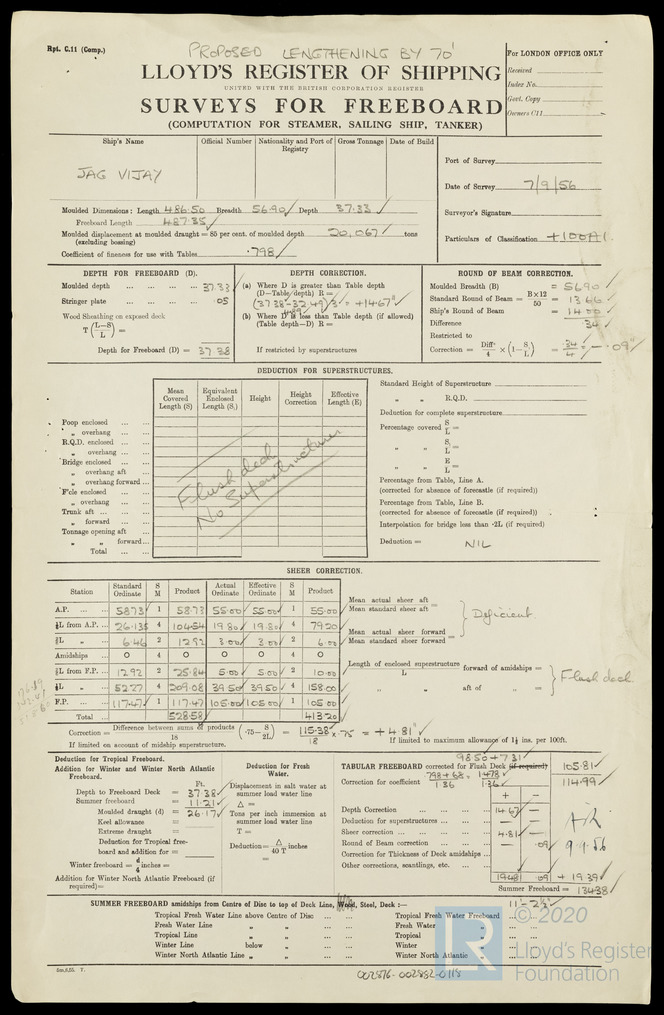 Rpt. C.11 (Comp.)
PROPOSED LENGTHENING BY 70'
LLOYD'S REGISTER OF SHIPPING
UNITED WITH THE BRITISH CORPORATION REGISTER
SURVEYS FOR FREEBOARD
(COMPUTATION FOR STEAMER, SAILING SHIP, TANKER)
For LONDON OFFICE ONLY
Received
Index No.
Govt. Copy
Owners C11
Ship's Name Official Number Nationality and Port of Registry Gross Tonnage Date of Build
JAG VIJAY
Port of Survey
Date of Survey 7/9/56
Surveyor's Signature
Particulars of Classification +100A1.
Moulded Dimensions: Length 486.50 Breadth 56.90 Depth 37.33
Freeboard Length 487.35
Moulded displacement at moulded draught = 85 per cent. of moulded depth 20,067 tons
(excluding bossing)
Coefficient of fineness for use with Tables .798
DEPTH FOR FREEBOARD (D).
Moulded depth 37.33
Stringer plate .05
Wood Sheathing on exposed deck
T (L-S/L) =
Depth for Freeboard (D) = 37.38
DEPTH CORRECTION.
(a) Where D is greater than Table depth
(D-Table depth) R =
(37.38-32.49) 3 = +14.67"
(b) Where D is less than Table depth (if allowed)
(Table depth-D) R =
If restricted by superstructures
ROUND OF BEAM CORRECTION.
Moulded Breadth (B) = 56.90
Standard Round of Beam = B×12/50 = 13.66
Ship's Round of Beam = 14.00
Difference .34
Restricted to
Correction = Diff/4 × (1-S/L) = .34/4 = -.09"
DEDUCTION FOR SUPERSTRUCTURES.
Mean Covered Length (S) Equivalent Enclosed Length (S₁) Height Height Correction Effective Length (E)
Poop enclosed
„ overhang
R.Q.D. enclosed
„ overhang
Bridge enclosed
„ overhang aft
„ overhang forward
F'cle enclosed
„ overhang
Trunk aft
„ forward
Tonnage opening aft
„ „ forward
Total
Flush deck
No Superstructure
Standard Height of Superstructure
„ „ R.Q.D.
Deduction for complete superstructure
Percentage covered S/L =
„ „ S₁/L =
„ „ E/L =
Percentage from Table, Line A.
(corrected for absence of forecastle (if required))
Percentage from Table, Line B.
(corrected for absence of forecastle (if required))
Interpolation for bridge less than ·2L (if required)
Deduction = NIL
SHEER CORRECTION.
Station Standard Ordinate S M Product Actual Ordinate Effective Ordinate S M Product
A.P. 58.73 1 58.73 55.00 55.00 1 55.00
⅙L from A.P. 26.135 4 104.54 19.80 19.80 4 79.20
⅓L „ 6.46 2 12.92 3.00 3.00 2 6.00
Amidships 0 4 0 0 0 4 0
⅓L from F.P. 12.92 2 25.84 5.00 5.00 2 10.00
⅙L „ 52.27 4 209.08 39.50 39.50 4 158.00
F.P. 117.47 1 117.47 105.00 105.00 1 105.00
Total 528.58 413.20
Mean actual sheer aft
Mean standard sheer aft =
Mean actual sheer forward
Mean standard sheer forward =
Deficient.
Length of enclosed superstructure forward of amidships =
L
„ „ aft of „ =
Flush deck
Correction = Difference between sums of products/18 (·75 - S/2L) = 115.38/18 × .75 = +4.81"
If limited on account of midship superstructure.
If limited to maximum allowance of 1½ ins. per 100ft.
Deduction for Tropical Freeboard.
Addition for Winter and Winter North Atlantic Freeboard.
Ft.
Depth to Freeboard Deck = 37.38
Summer freeboard = 11.21
Moulded draught (d) = 26.17
Keel allowance =
Extreme draught =
Deduction for Tropical freeboard and addition for =
Winter freeboard = d/4 inches =
Addition for Winter North Atlantic Freeboard (if required)=
Deduction for Fresh Water.
Displacement in salt water at summer load water line
Δ =
Tons per inch immersion at summer load water line
T =
Deduction = Δ/40 T inches
=
98.50 + 7.31
TABULAR FREEBOARD corrected for Flush Deck (if required) 105.81
Correction for coefficient .798+.68/1.36 = 1.478/1.36 114.99
+ -
Depth Correction 14.67 -
Deduction for superstructures - -
Sheer correction 4.81 -
Round of Beam correction - .09
Correction for Thickness of Deck amidships
Other corrections, scantlings, etc.
19.48 .09 +19.39
Summer Freeboard = 134.38
9.9.56
11'-2½"
SUMMER FREEBOARD amidships from Centre of Disc to top of Deck Line, Wood, Steel, Deck :—
Tropical Fresh Water Line above Centre of Disc
Fresh Water Line „ „
Tropical Line „ „
Winter Line below „
Winter North Atlantic Line „ „
Tropical Fresh Water Freeboard
Fresh Water „
Tropical „
Winter „
Winter North Atlantic „
5m.9,55. T.
002876-002882-0118
© 2020
LR
Lloyd's Register
Foundation